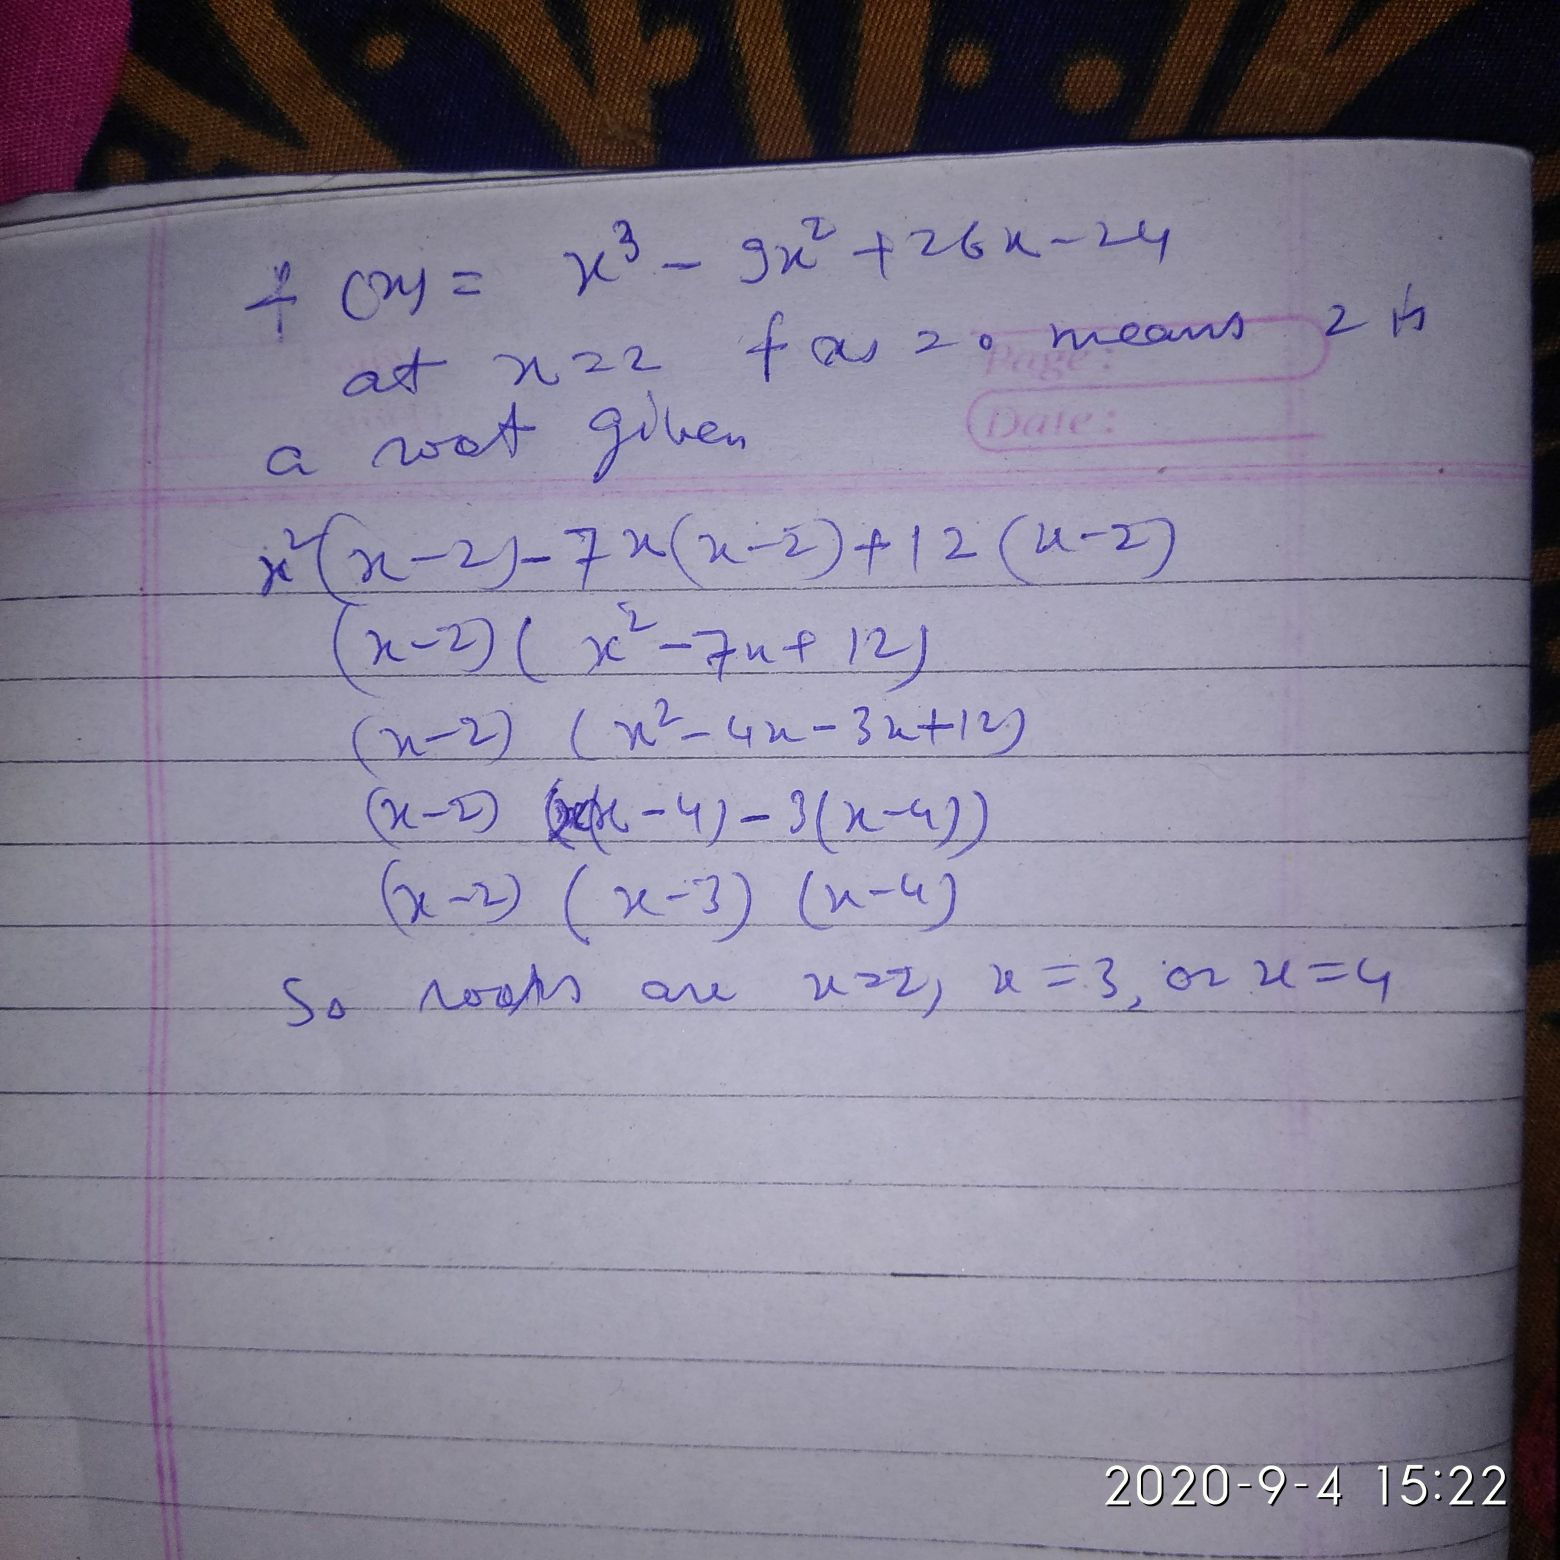 f(x) = x³ - 9x² + 26x - 24
at x=2 f(x) = 0 means 2 is
Page:
a root given
Date:
x²(x-2)-7x(x-2)+12(x-2)
(x-2)(x²-7x+12)
(x-2) (x²-4x-3x+12)
(x-2) (x(x-4)-3(x-4))
(x-2) (x-3) (x-4)
So roots are x=2, x=3, or x=4
2020-9-4 15:22